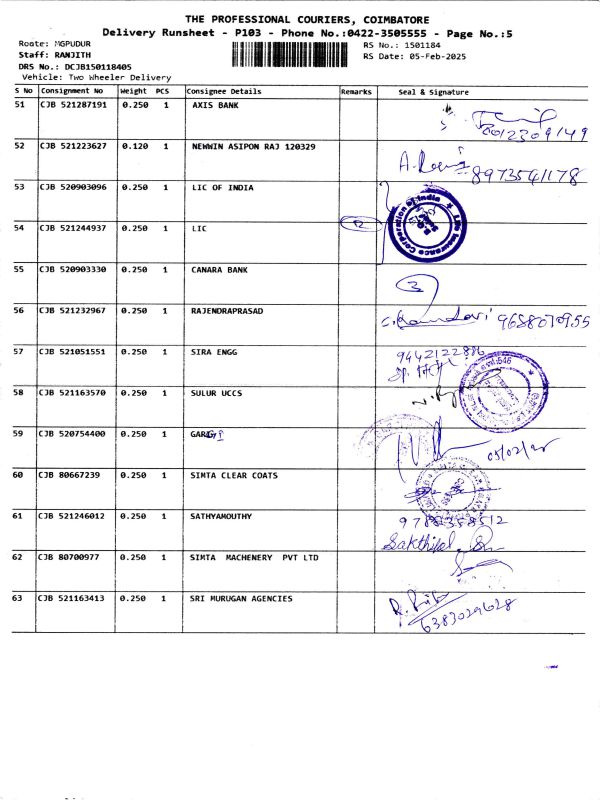 THE PROFESSIONAL COURIERS, COIMBATORE
Delivery Runsheet - P103 - Phone No.:0422-3505555 - Page No.:5
Route: MGPUDUR
RS No.: 1501184
Staff: RANJITH
RS Date: 05-Feb-2025
DRS No.: DCJB150118405
Vehicle: Two Wheeler Delivery
S No Consignment No Weight PCS Consignee Details Remarks Seal & Signature
51 CJB 521287191 0.250 1 AXIS BANK
52 CJB 521223627 0.120 1 NEWWIN ASIPON RAJ 120329
8973541178
53 CJB 520903096 0.250 1 LIC OF INDIA
Life Insurance Corporation of India
54 CJB 521244937 0.250 1 LIC
55 CJB 520903330 0.250 1 CANARA BANK
3
56 CJB 521232967 0.250 1 RAJENDRAPRASAD
57 CJB 521051551 0.250 1 SIRA ENGG
9442122886
58 CJB 521163570 0.250 1 SULUR UCCS
59 CJB 520754400 0.250 1
05/02/25
60 CJB 80667239 0.250 1 SIMTA CLEAR COATS
61 CJB 521246012 0.250 SATHYAMOUTHY
62 CJB 80700977 0.250 1 SIMTA MACHENERY PVT LTD
63 CJB 521163413 0.250 1 SRI MURUGAN AGENCIES
6383029628